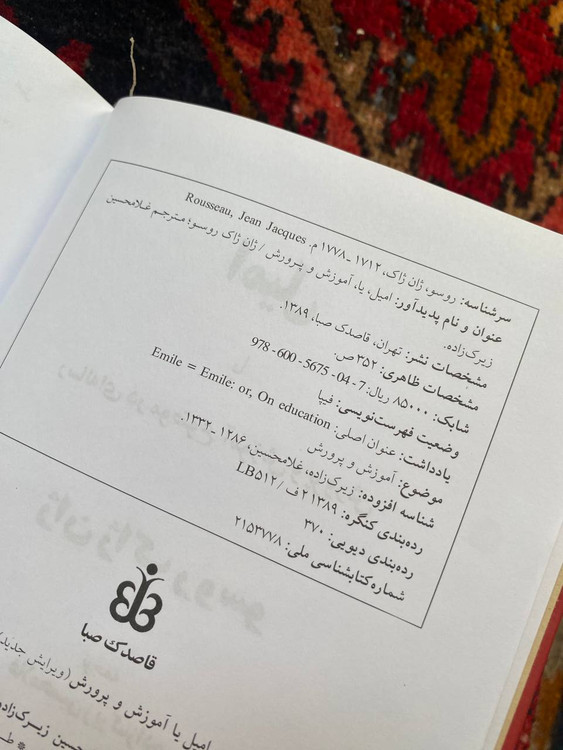 سرشناسه: روسو، ژان ژاک، ۱۷۱۲ ـ ۱۷۷۸ م. Rousseau, Jean Jacques
عنوان و نام پدیدآور: امیل، یا، آموزش و پرورش / ژان ژاک روسو؛ مترجم غلامحسین
زیرک‌زاده.
مشخصات نشر: تهران، قاصدک صبا، ۱۳۸۹.
مشخصات ظاهری: ۳۵۲ ص.
شابک: ۸۵۰۰۰ ریال: 978-600-5675-04-7
وضعیت فهرست‌نویسی: فیپا
یادداشت: عنوان اصلی: Emile = Emile: or, On education
موضوع: آموزش و پرورش
شناسه افزوده: زیرک‌زاده، غلامحسین، ۱۲۸۶ ـ ۱۳۳۲.
رده‌بندی کنگره: ۱۳۸۹ ۲ف / LB۵۱۲
رده‌بندی دیویی: ۳۷۰
شماره کتابشناسی ملی: ۲۱۵۳۷۷۸
قاصدک صبا
امیل یا آموزش و پرورش (ویرایش جدید)